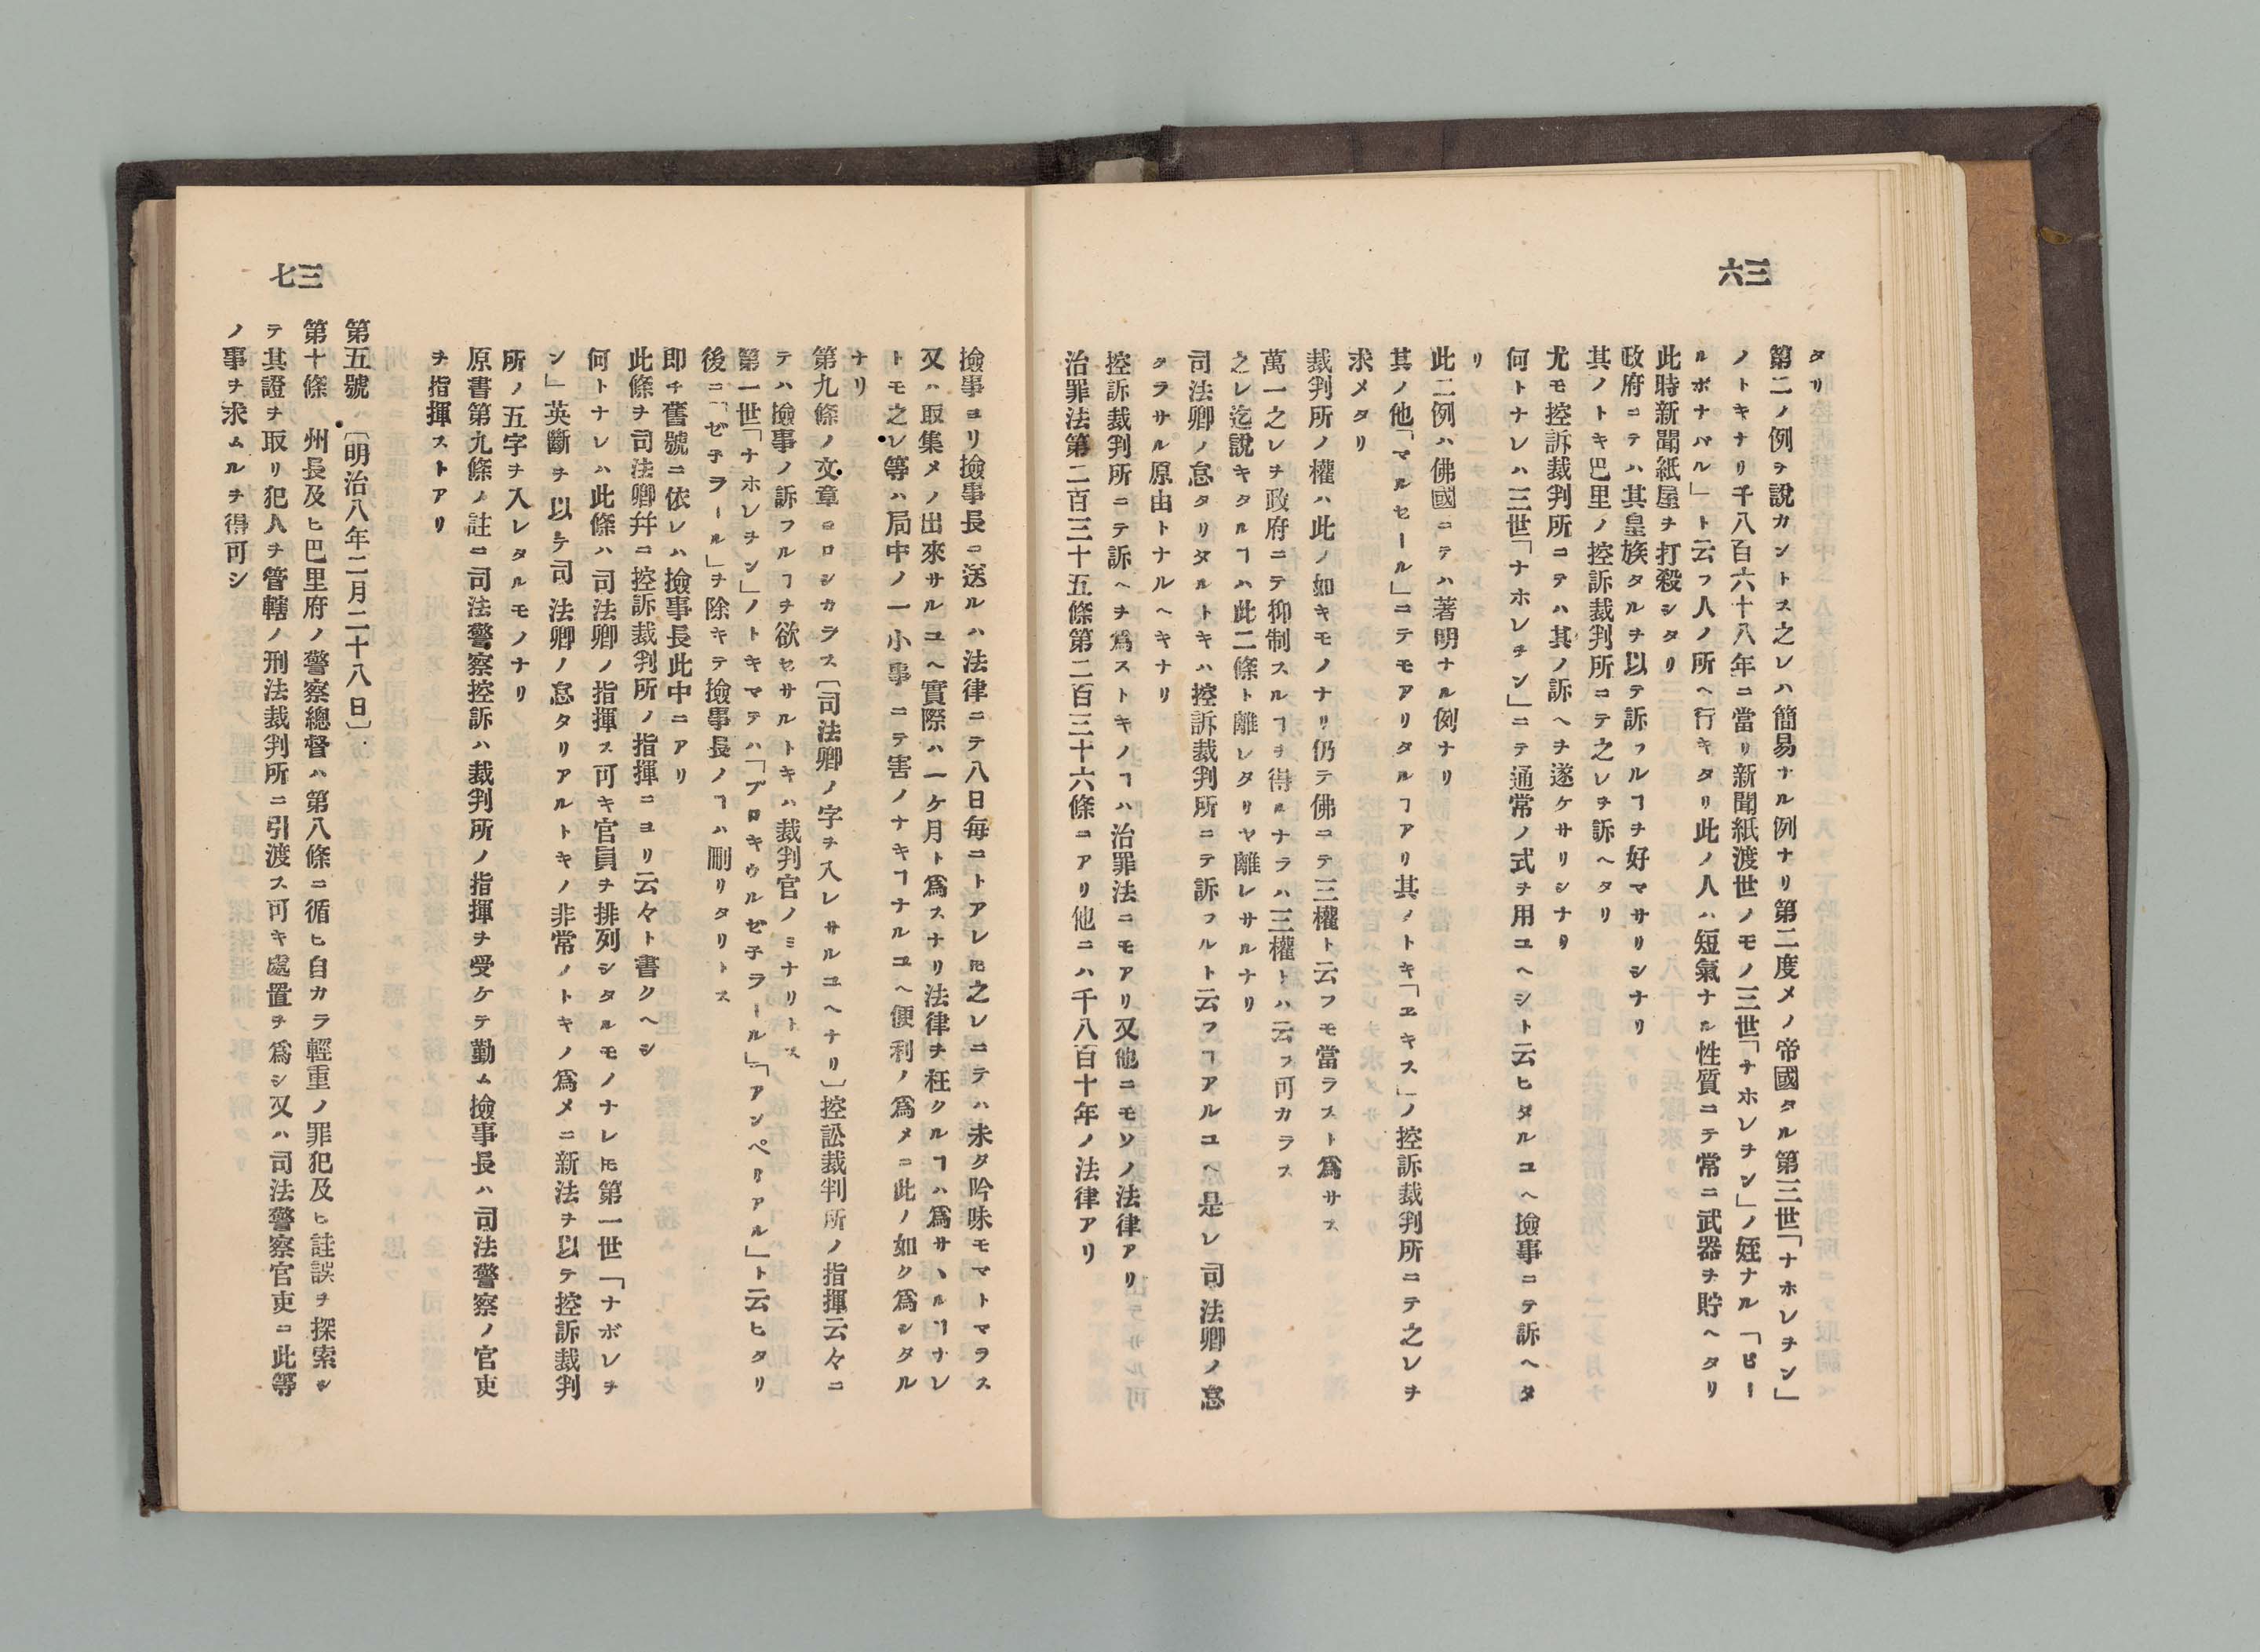 三六
タリ
第二ノ例ヲ說カントス之レハ簡易ナル例ナリ第二度メノ帝國タル第三世「ナホレヲン」
ノトキナリ千八百六十八年ニ當リ新聞紙渡世ノモノ三世「ナホレヲン」ノ姪ナル「ピー
ルボナパル」ト云フ人ノ所ヘ行キタリ此ノ人ハ短氣ナル性質ニテ常ニ武器ヲ貯ヘタリ
此時新聞紙屋ヲ打殺シタリ
政府ニテハ其皇族タルヲ以テ訴フルヿヲ好マサリシナリ
其ノトキ巴里ノ控訴裁判所ニテ之レヲ訴ヘタリ
尤モ控訴裁判所ニテハ其ノ訴ヘヲ遂ケサリシナリ
何トナレハ三世「ナホレヲン」ニテ通常ノ式ヲ用ユヘシト云ヒタルユヘ撿事ニテ訴ヘタ
リ
此二例ハ佛國ニテハ著明ナル例ナリ
其ノ他「マルセール」ニテモアリタルヿアリ其ノトキ「ヱキス」ノ控訴裁判所ニテ之レヲ
求メタリ
裁判所ノ權ハ此ノ如キモノナリ仍テ佛ニテ三權ト云フモ當ラスト爲サス
萬一之レヲ政府ニテ抑制スルヿヲ得ルナラハ三權トハ云フ可カラス
之レ迄說キタルヿハ此二條ト離レタリヤ離レサルナリ
司法卿ノ怠タリタルトキハ控訴裁判所ニテ訴フルト云フヿアルユヘ是レ司法卿ノ怠
タラサル原由トナルヘキナリ
控訴裁判所ニテ訴ヘヲ爲ストキノヿハ治罪法ニモアリ又他ニモソノ法律アリ
治罪法第二百三十五條第二百三十六條ニアリ他ニハ千八百十年ノ法律アリ
三七
撿事ヨリ撿事長ニ送ルハ法律ニテ八日每ニトアレ𪜈之レニテハ未タ吟味モマトマラス
又ハ取集メノ出來サルユヘ實際ハ一ケ月ト爲スナリ法律ヲ枉クルヿハ爲サヽルヿナレ
トモ之レ等ハ局中ノ一小事ニテ害ノナキヿナルユヘ便利ノ爲メニ此ノ如ク爲シタル
ナリ
第九條ノ文章ヨロシカラス〔司法卿ノ字ヲ入レサルユヘナリ〕控訟裁判所ノ指揮云々ニ
テハ撿事ノ訴フルヿヲ欲セサルトキハ裁判官ノミナリトス
第一世「ナホレヲン」ノトキマテハ「プロキウルゼ子ラール」「アンペリアル」ト云ヒタリ
後ニ「ゼ子ラール」ヲ除キテ撿事長ノヿハ刪リタリトス
即チ舊號ニ依レハ撿事長此中ニアリ
此條ヲ司法卿幷ニ控訴裁判所ノ指揮ニヨリ云々ト書クヘシ
何トナレハ此條ハ司法卿ノ指揮ス可キ官員ヲ排列シタルモノナレ𪜈第一世「ナボレヲ
ン」英斷ヲ以テ司法卿ノ怠タリアルトキノ非常ノトキノ爲メニ新法ヲ以テ控訴裁判
所ノ五字ヲ入レタルモノナリ
原書第九條ノ註ニ司法警察控訴ハ裁判所ノ指揮ヲ受ケテ勤ム撿事長ハ司法警察ノ官吏
ヲ指揮ストアリ
第五號 〔明治八年二月二十八日〕
第十條 州長及ヒ巴里府ノ警察總督ハ第八條ニ循ヒ自カラ輕重ノ罪犯及ヒ註誤ヲ探索シ
テ其證ヲ取リ犯人ヲ管轄ノ刑法裁判所ニ引渡ス可キ處置ヲ爲シ又ハ司法警察官吏ニ此等
ノ事ヲ求ムルヲ得可シ